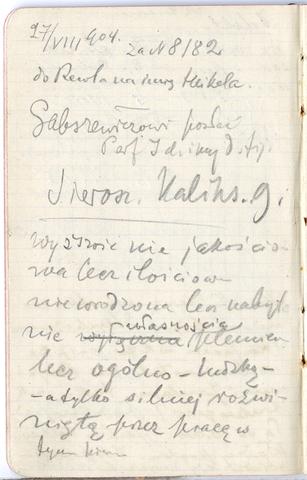 27/VIII 904.
za N 8/82
do Rewla na imię Mikela.
Gabszewiczowi posłać
Perf I
Sierosz. Kaliks. 9.
wyższość nie jakościo-
wa lecz ilościowa
nie wrodzona lecz nabyta
własnością
nie plemien
lecz ogólno-ludzką-
-a tylko silniej rozwi-
niętą przez pracę w